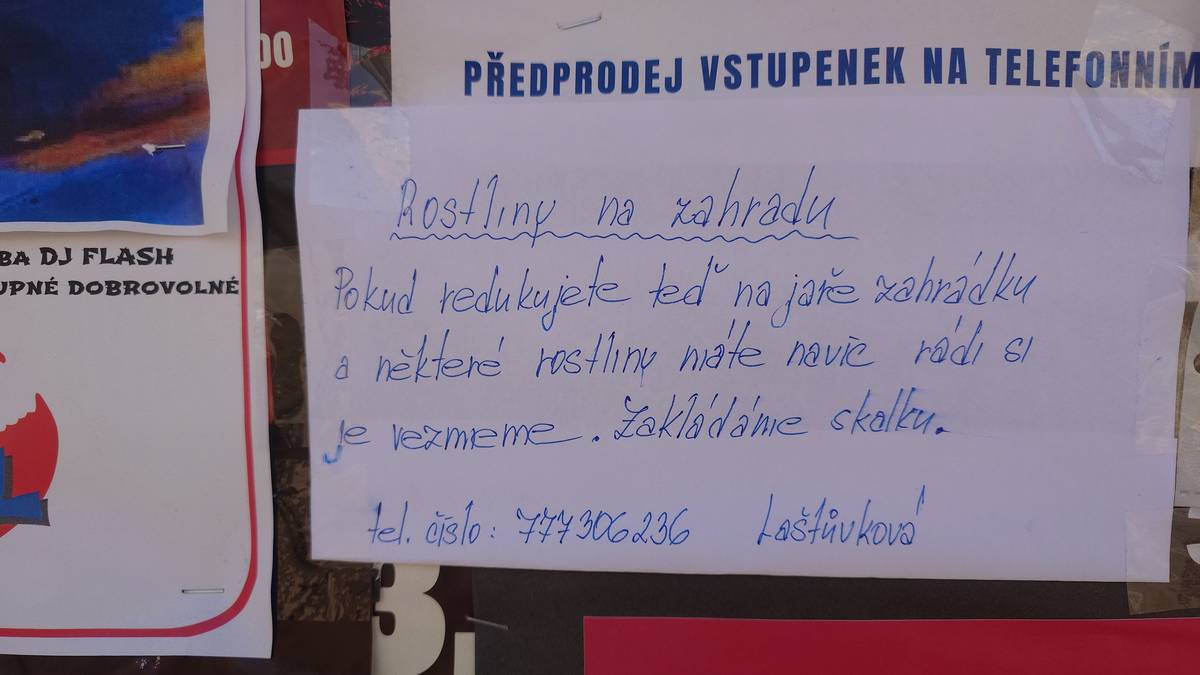 00
PŘEDPRODEJ VSTUPENEK NA TELEFONNÍM
Rostliny na zahradu
Pokud redukujete teď na jaře zahrádku
a některé rostliny máte navíc rádi si
je vezmeme. Zakládáme skalku.
tel. číslo: 777306236 Laštůvková
BA DJ FLASH
UPNÉ DOBROVOLNÉ
3.